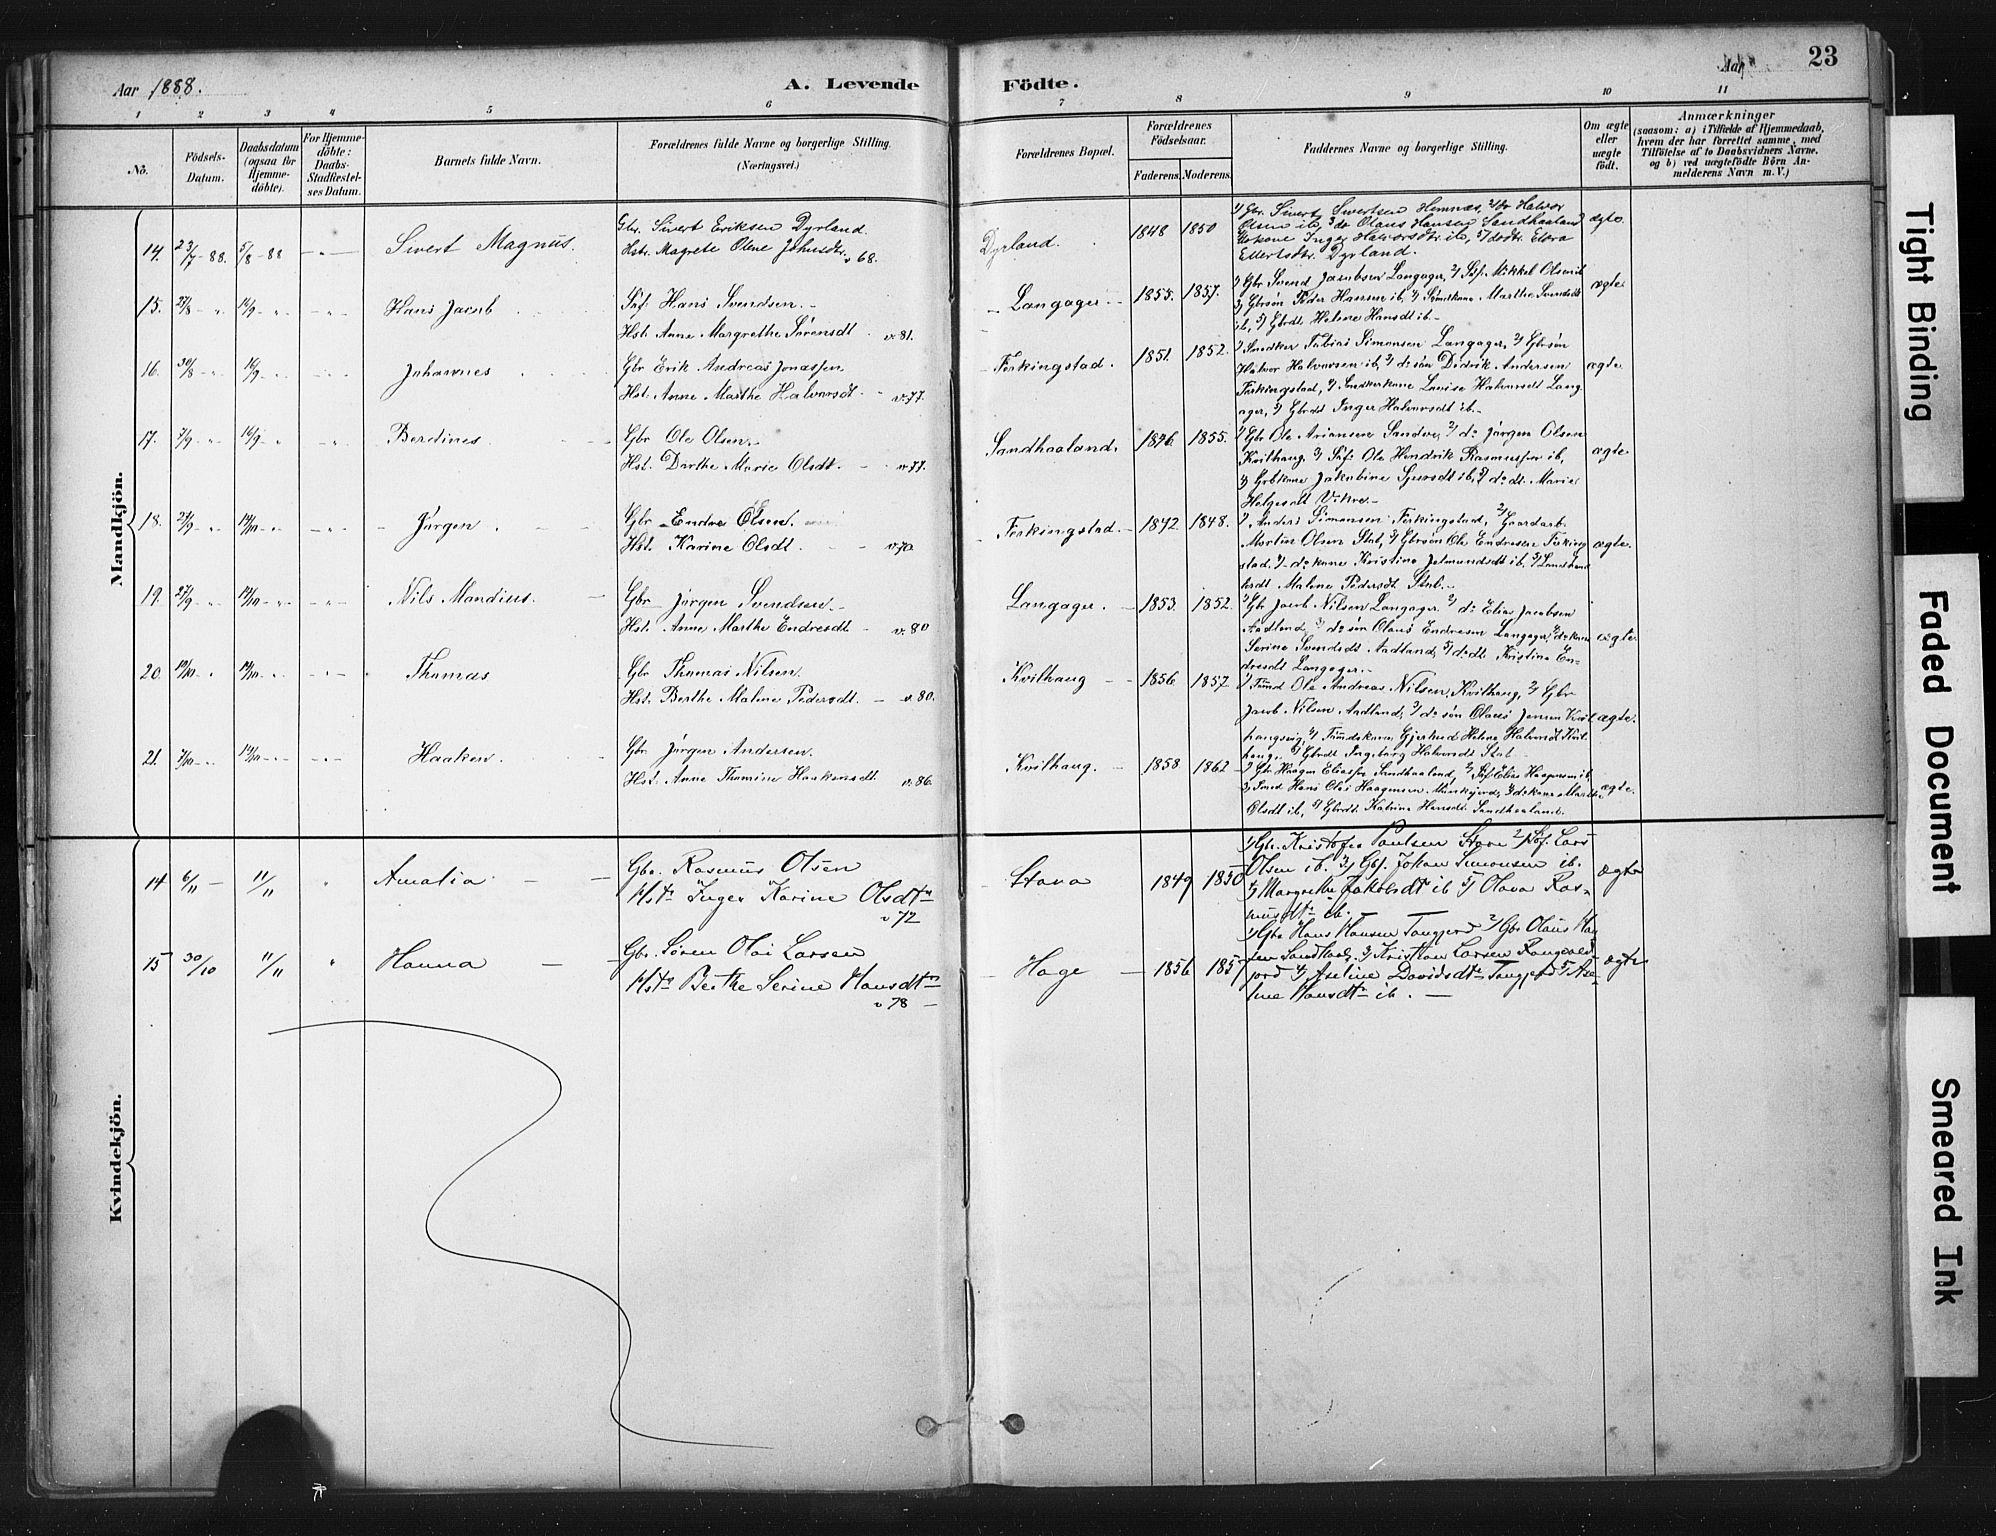 Aar 1888.
A. Levende Födte.
Aar
23
1 2 3 4 5 6 7 8 9 10 11
No.
Födsels-Datum.
Daabsdatum (ogsaa for Hjemme-döbte).
For Hjemme-döbte: Daabs-Stadfæstel-ses Datum.
Barnets fulde Navn.
Forældrenes fulde Navne og borgerlige Stilling. (Næringsvei.)
Forældrenes Bopæl.
Forældrenes Födselsaar.
Faderens. Moderens.
Faddernes Navne og borgerlige Stilling.
Om ægte eller uægte födt.
Anmærkninger
(saasom: a) i Tilfælde af Hjemmedaab, hvem der har forrettet samme, med Tilföielse af to Daabsvidners Navne. og b) ved uægtefödte Börn An-melderens Navn m. V.)
Mandkjön.
14. 23/7-88. 5/8-88 Sivert Magnus.
Gbr. Sivert Eriksen Dyrland.
Hstr. Magrete Oline Johnsdtr. v 68.
Dyrland. 1848 1850
1/ Gbr. Sivert Sivertsen Hemnæs, 2/ Halvor
Olsen ib, 3/ do Olaus Hansen Sandhaaland
Inger Halvorsdtr. ib, 5/ dodtr. Elora
Ellertsdtr. Dyrland.
ægte.
15. 27/8 14/9 Hans Jacob
Söf. Hans Svendsen.
Hst. Anne Margrethe Sörensdt. v. 81.
Langager. 1855. 1857.
1/ Gbr Svend Jacobsen Langager, 2/ Söf. Mikkel Olsen ib
3/ Gbrsön Peder Hansen ib, 4/ Marthe Svendsdt
ib, 5/ Gbrdt. Helene Hansdt ib.
ægte
16. 30/8 16/9 Johannes
Gbr Erik Andreas Jonassen
Hst. Anne Marthe Halvorsdt. v. 77.
Ferkingstad. 1851. 1852.
1/ Snedker Tobias Simonsen Langager, 2/ Gbrsön
Halvor Halvorsen ib, 3/ do sön Didrik Andersen
Ferkingstad, 4/ Snedkerkone Lovise Halvorsdt Lang
ager, 5/ Gbrdt Inger Halvorsdt ib.
ægte
17. 7/9 16/9 Berdines
Gbr Ole Olsen.
Hst. Dorthe Marie Olsdt. v. 77.
Sandhaaland. 1846. 1855.
1/ Gbr Ole Ariansen Sandve, 2/ do Jörgen Olsen
Kvilhaug, 3/ Söf. Ole Hendrik Rasmussen ib,
4/ Gbrkone Jakobine Sjursdt ib, 5/ do dt. Marie
Helgesdt Vikre.
ægte
18. 24/9 14/10 Jörgen.
Gbr Endre Olsen.
Hst. Karine Olsdt. v. 70.
Ferkingstad. 1842. 1848.
1/ Anders Simonsen Ferkingstad, 2/ Gaardarb.
Morten Olsen Stol, 3/ Gbrsön Ole Endresen Ferking
stad, 4/ do kone Kristine Jelmundsdt ib, 5/
Malene Pedersdt Stol.
ægte.
19. 27/9 14/10 Nils Mandius.
Gbr Jörgen Svendsen.
Hst. Anne Marthe Endresdt v. 80
Langager. 1853. 1852.
1/ Gbr Jacob Nilsen Langager 2/ do Elias Jacobsen
Aadland, 3/ do sön Olaus Endresen Langager, 4/ do kone
Serine Svendsdt Aadland, 5/ do dt. Kristine En-
dresdt Langager.
ægte
20. 10/10 14/10 Thomas
Gbr Thomas Nilsen.
Hst. Berthe Malene Pedersdt. v. 80.
Kvilhaug 1856 1857
1/ Ole Andreas Nilsen, Kvilhaug, 2/ Gbr
Jacob Nilsen Aadland, 3/ do sön Olaus Jensen Kvil
haugsvig, 4/ Gjertrud Helene Halvorsdt Kvil
haug, 5/ Gbrdt Ingeborg Halvorsdt Stol.
ægte.
21. 7/10 14/10 Haaken.
Gbr. Jörgen Andersen.
Hst. Anne Thomine Haakensdt. v. 86.
Kvilhaug. 1858 1862
1/ Gbr Haagen Eliassen Sandhaaland, 2/ Söf. Elias Haagensen ib,
3/ Smed Hans Olai Haagensen Munkejord, 4/ do kone Marthe
Olsdt ib, 5/ Gbrdt Katrine Hansdt. Sandhaaland.
ægte.
Kvindekjön.
14 6/11 11/11 Amalia
Gbr. Rasmus Olsen
Hstr Inger Karine Olsdtr
v 72
Stava 1849 1850
1/ Gbr. Kristofer Paulsen Stava 2/ Söf. Lars
Olsen ib. 3/ Gbs. Johan Simonsen ib.
4/ Margrethe Jakobsdt ib 5/ Olava Ras-
musdtr ib.
ægte
15 30/10 11/11 Hanna
Gbr. Sören Olai Larsen
Hstr Berthe Serine Hansdtr
v 78
Hage 1856 1857
1/ Gbr Hans Hansen Tangjerd 2/ Gbr Olaus Han
sen Sandhaal. 3/ Kristian Larsen Rangvald
jord 4/ Aseline Davidsdtr Tangjerd 5/ Ase-
line Hansdtr ib.
ægte
Tight Binding
Faded Document
Smeared Ink